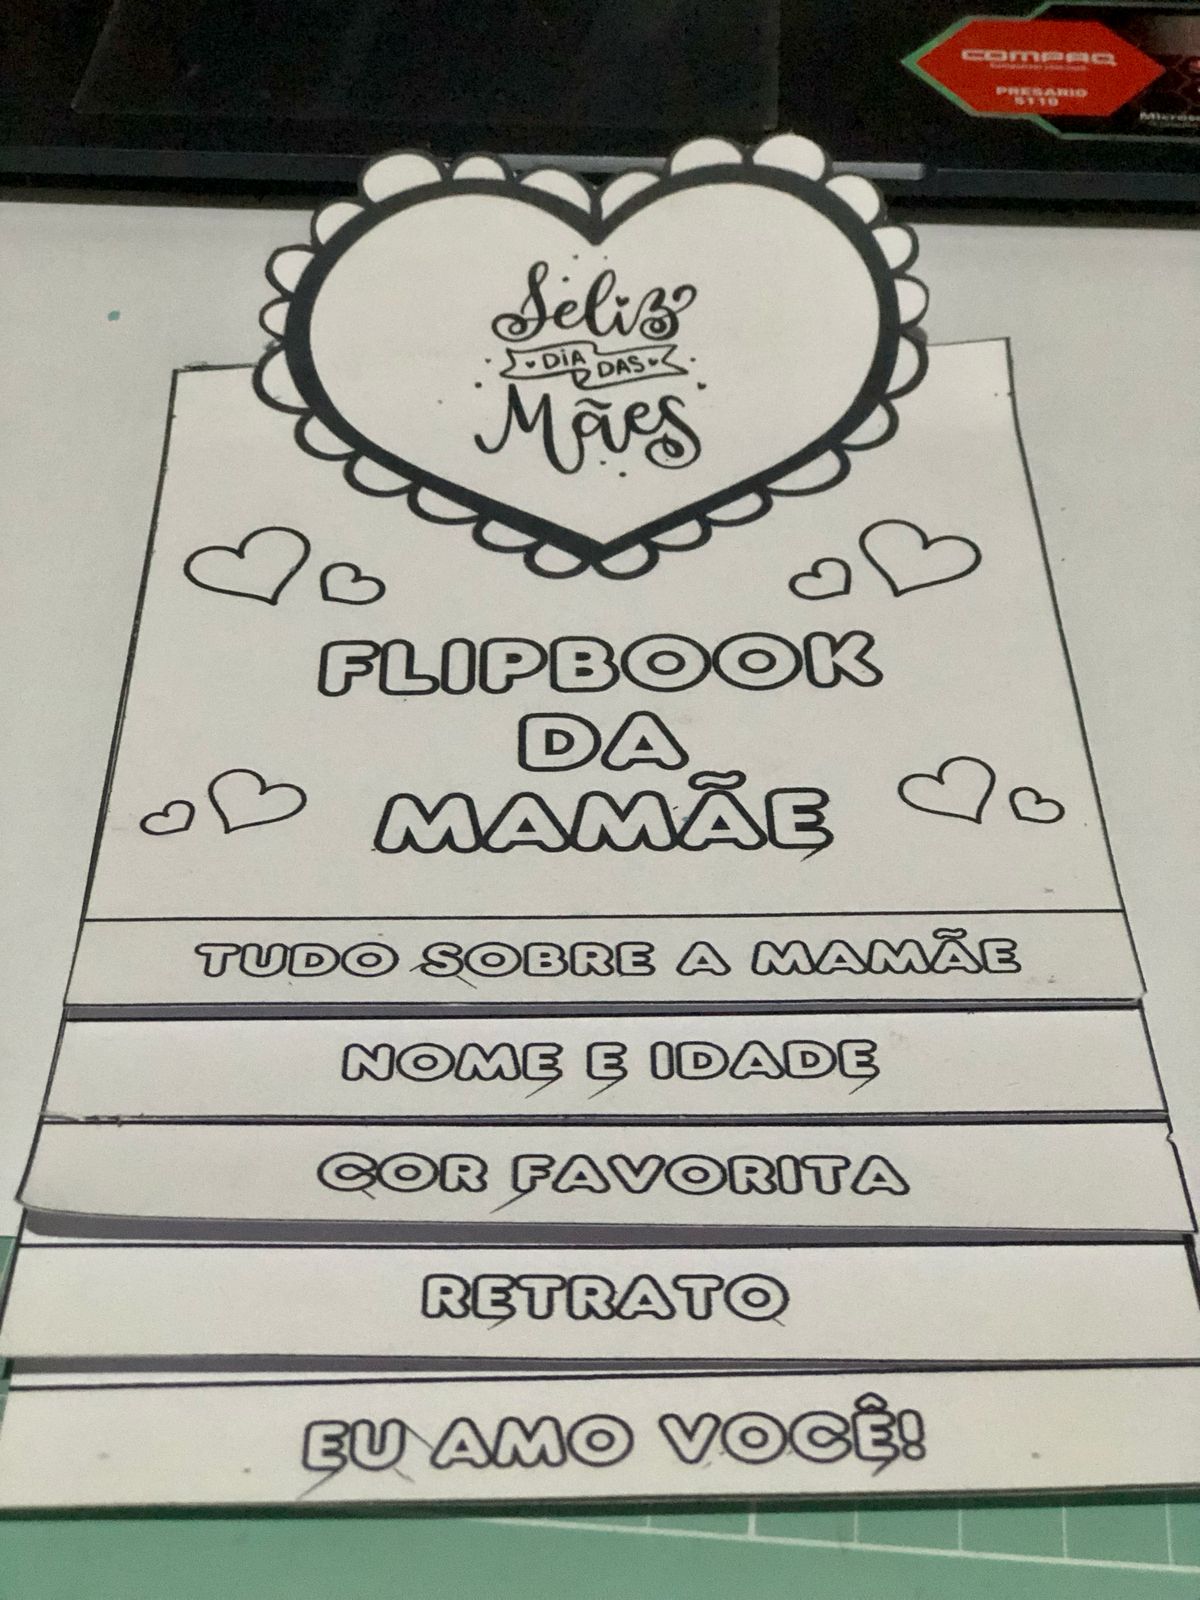 COMPAQ
PRESARIO
5110
Feliz
DIA DAS
Mães
FLIPBOOK
DA
MAMÃE
TUDO SOBRE A MAMÃE
NOME E IDADE
COR FAVORITA
RETRATO
EU AMO VOCÊ!